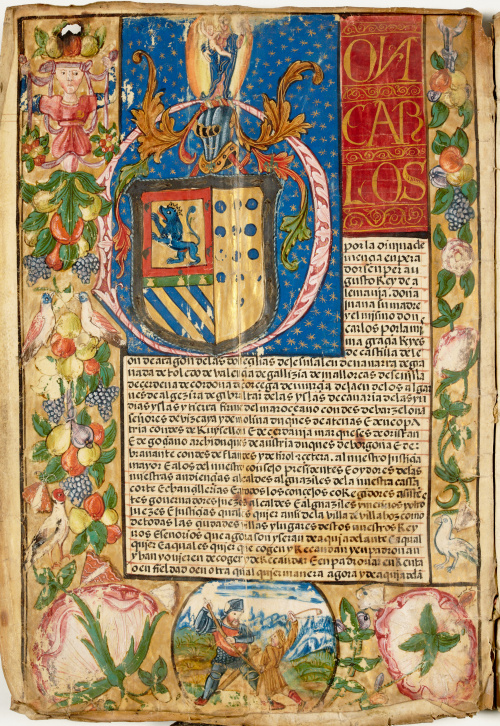 ON
CAR
LOS
por la divina cle
mencia enpera
dor senper au
gusto Rey de a
lemania. doña
juana su madre
y el mismo don
carlos por la mi
ma graçia Reyes
de castilla de le
on de aragon de las dos seçilias de jerusalen de navarra de gra
nada de toledo de valençia de gallizia de mallorcas de sevilla
de çerdeña de cordova de corçega de murçia de jaen de los algar
ves de algezira de gibraltar de las yslas de canaria de las yn
dias yslas y tierra firme del mar oçeano condes de barzelona
señores de vizcaya y de molina duques de atenas E de neopa
tria condes de Ruysellon E de çerdania marqueses de oristan
E de goçiano archiduques de austria duques de borgoña E de
bravante condes de flandes y de tirol ecetera. al nuestro justiçia
mayor E a los del nuestro consejo presidentes E oydores de las
nuestras audiençias alcaldes alguaziles de la nuestra casa
corte E chançillerias E a todos los conçejos coRegidores asisten
tes governadores alcaldes E alguaziles y otros
juezes E justiçias quales quier ansi de la villa de villalbos como
de todas las çiudades villas y lugares destos nuestros Rey
nos E señorios que agora son y seran de aqui adelante E a qual
quier E a quales quier que cogen y Recaudan y enpadronan
y han y ovieren de coger y de Recaudar E enpadronar en Renta
o en fieldad o en otra qual quier manera agora y de aqui ade